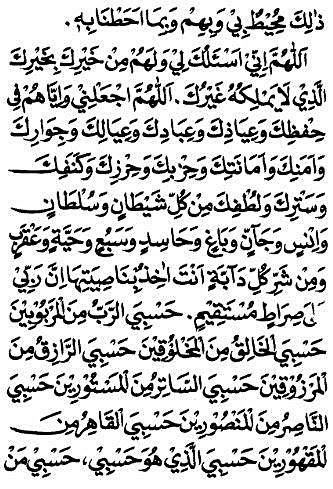 ذٰلِكَ مُحِيْطٌ بِيْ وَبِهِمْ وَبِمَا اَحَطْنَابِهِ.
اَللّٰهُمَّ اِنِّيْ اَسْئَلُكَ لِيْ وَلَهُمْ مِنْ خَيْرِكَ بِخَيْرِكَ
الَّذِيْ لَايَمْلِكُهُ غَيْرُكَ. اَللّٰهُمَّ اجْعَلْنِيْ وَاِيَّاهُمْ فِى
حِفْظِكَ وَعِيَاذِكَ وَعِبَادِكَ وَعِيَالِكَ وَجِوَارِكَ
وَاَمْنِكَ وَاَمَانَتِكَ وَحِزْبِكَ وَحِرْزِكَ وَكَنَفِكَ
وَسَتْرِكَ وَلُطْفِكَ مِنْ كُلِّ شَيْطَانٍ وَسُلْطَانٍ
وَاِنْسٍ وَجَآنٍّ وَبَاغٍ وَحَاسِدٍ وَسَبُعٍ وَحَيَّةٍ وَعَقْرَبٍ
وَمِنْ شَرِّ كُلِّ دَآبَّةٍ اَنْتَ اٰخِذٌ بِنَاصِيَتِهَا اِنَّ رَبِّيْ
عَلٰى صِرَاطٍ مُسْتَقِيْمٍ. حَسْبِيَ الرَّبُّ مِنَ الْمَرْبُوْبِيْنَ
حَسْبِيَ الْخَالِقُ مِنَ الْمَخْلُوْقِيْنَ حَسْبِيَ الرَّازِقُ مِنَ
الْمَرْزُوْقِيْنَ حَسْبِيَ السَّاتِرُ مِنَ الْمَسْتُوْرِيْنَ حَسْبِيَ
النَّاصِرُ مِنَ الْمَنْصُوْرِيْنَ حَسْبِيَ الْقَاهِرُ مِنَ
الْمَقْهُوْرِيْنَ حَسْبِيَ الَّذِيْ هُوَ حَسْبِيْ، حَسْبِيْ مَنْ